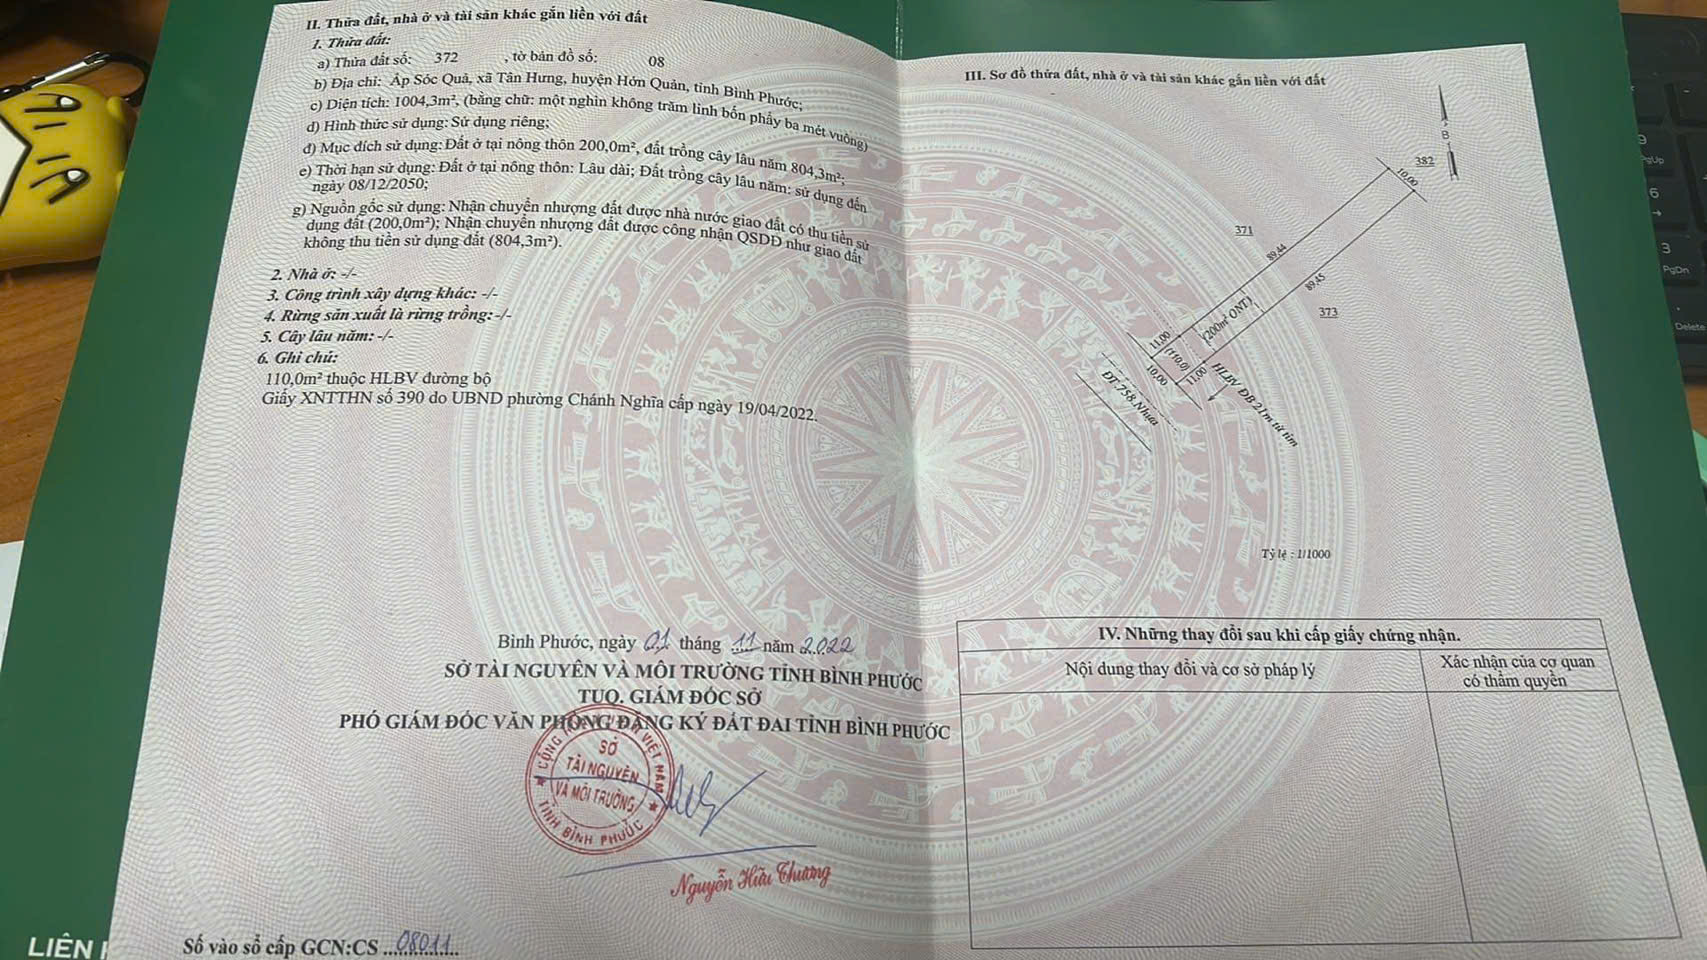 II. Thửa đất, nhà ở và tài sản khác gắn liền với đất
1. Thửa đất:
a) Thửa đất số: 372 , tờ bản đồ số: 08
b) Địa chỉ: Ấp Sóc Quả, xã Tân Hưng, huyện Hớn Quản, tỉnh Bình Phước;
c) Diện tích: 1004,3m², (bằng chữ: một nghìn không trăm linh bốn phẩy ba mét vuông)
d) Hình thức sử dụng: Sử dụng riêng;
đ) Mục đích sử dụng: Đất ở tại nông thôn 200,0m², đất trồng cây lâu năm 804,3m²;
e) Thời hạn sử dụng: Đất ở tại nông thôn: Lâu dài; Đất trồng cây lâu năm: sử dụng đến
ngày 08/12/2050;
g) Nguồn gốc sử dụng: Nhận chuyển nhượng đất được nhà nước giao đất có thu tiền sử
dụng đất (200,0m²); Nhận chuyển nhượng đất được công nhận QSDĐ như giao đất
không thu tiền sử dụng đất (804,3m²).
2. Nhà ở: -/-
3. Công trình xây dựng khác: -/-
4. Rừng sản xuất là rừng trồng: -/-
5. Cây lâu năm: -/-
6. Ghi chú:
110,0m² thuộc HLBV đường bộ
Giấy XNTTHN số 390 do UBND phường Chánh Nghĩa cấp ngày 19/04/2022.
Bình Phước, ngày 01 tháng 11 năm 2022
SỞ TÀI NGUYÊN VÀ MÔI TRƯỜNG TỈNH BÌNH PHƯỚC
TUQ. GIÁM ĐỐC SỞ
PHÓ GIÁM ĐỐC VĂN PHÒNG ĐĂNG KÝ ĐẤT ĐAI TỈNH BÌNH PHƯỚC
SỞ
TÀI NGUYÊN
VÀ MÔI TRƯỜNG
TỈNH BÌNH PHƯỚC
Nguyễn Hữu Thương
Số vào sổ cấp GCN:CS 08011
LIÊN
III. Sơ đồ thửa đất, nhà ở và tài sản khác gắn liền với đất
B
382
10,00
371
89,44
89,45
373
(200m² ONT)
11,00
(110.0)
10,00
11,00
HLBV ĐB 21m từ tim
ĐT.758.Nhựa
Tỷ lệ : 1/1000
IV. Những thay đổi sau khi cấp giấy chứng nhận.
Nội dung thay đổi và cơ sở pháp lý
Xác nhận của cơ quan
có thẩm quyền
9
PgUp
6
3
PgDn
Delete